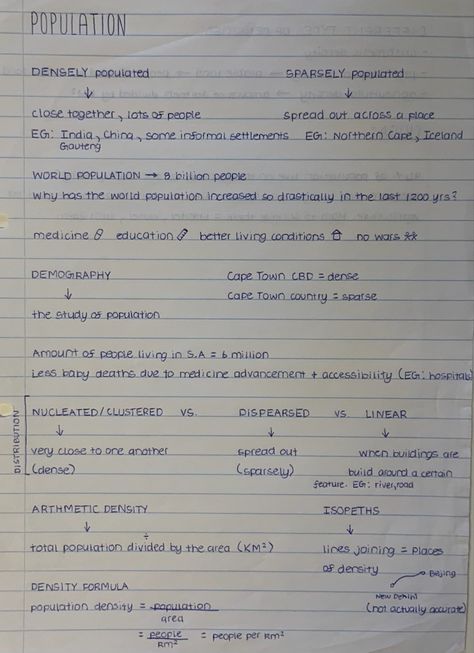 POPULATION
DENSELY populated
SPARSELY populated
close together, lots of people
spread out across a place
EG: India, China, some informal settlements
Gauteng
EG: Northern Cape, Iceland
WORLD POPULATION → 8 billion people
Why has the world population increased so drastically in the last 1200 yrs?
medicine education better living conditions no wars
DEMOGRAPHY
the study of population
Cape Town CBD = dense
Cape Town country = sparse
Amount of people living in S.A = 6 million
Less baby deaths due to medicine advancement + accessibility (EG: hospitals
DISTRIBUTION
NUCLEATED/CLUSTERED VS. DISPEARSED VS. LINEAR
very close to one another
(dense)
spread out
(sparsely)
when buildings are
build around a certain
feature. EG: river, road
ARTHMETIC DENSITY
÷
total population divided by the area (KM²)
ISOPETHS
lines joining = places
of density
Beijing
New Dehli
(not actually accurate)
DENSITY FORMULA
population density = population
area
= people = people per Km²
Km²